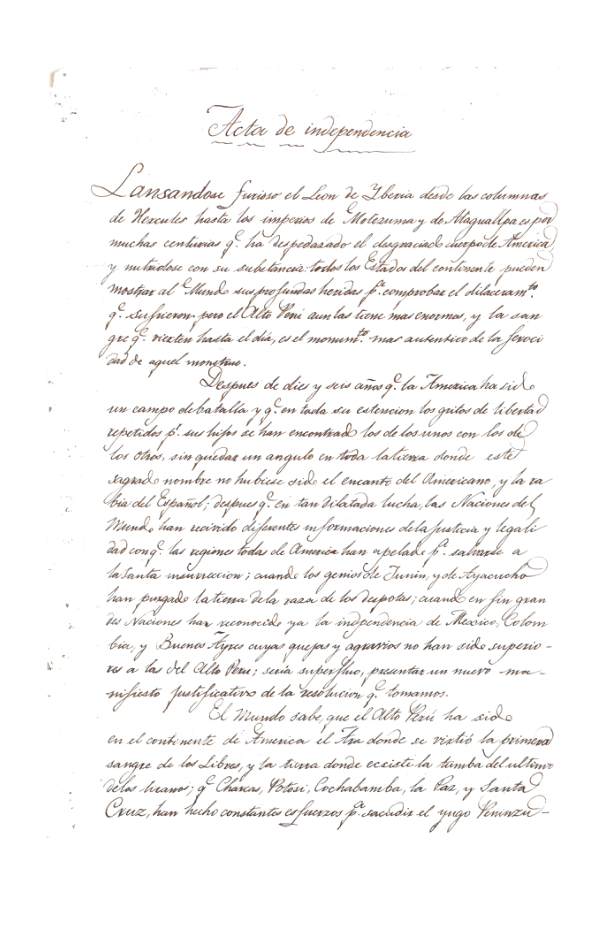 Acta de independencia
Lansandose furioso el Leon de Yberia desde las columnas
de Hercules hasta los imperios de Motezuma y de Atagualpa es por
muchas centurias q.e ha despedasado el desgraciado cuerpo de America
y nutridose con su substancia. todos los Estados del continente pueden
mostrar al Mundo sus profundas heridas p.a comprobar el dilaceram.to
q.e sufrieron; pero el Alto Perú aun las tiene mas enormes, y la san
gre q.e vierten hasta el día, es el monum.to mas autentico de la feroci
dad de aquel monstruo.
Despues de dies y seis años q.e la America ha sido
un campo de batalla y q.e en toda su estencion los gritos de libertad
repetidos p.r sus hijos se han encontrado los de los unos con los de
los otros, sin quedar un angulo en toda la tierra donde este
sagrado nombre no hubiese sido el encanto del Americano, y la ra
bia del Español; despues q.e en tan dilatada lucha, las Naciones del
Mundo han recivido diferente informaciones de la justicia y legali
dad con q.e las regiones todas de America han apelado p.a salvarse a
la Santa insurreccion; cuando los genios de Junin, y de Ayacucho
han purgado la tierra de la raza de los despotas; cuando en fin gran
des Naciones han reconocido ya la independencia de Mexico, Colom
bia, y Buenos Ayres cuyas quejas y agravios no han sido superio-
res a las del Alto Perú; seria superfluo, presentar un nuevo ma-
nifiesto justificativo de la resolucion q.e tomamos.
El Mundo sabe, que el Alto Perú ha sido
en el continente de America el Ara donde se virtió la primera
sangre de los Libres, y la tierra donde ecsiste la tumba del ultimo
de los tiranos; q.e Charcas, Potosi, Cochabamba, la Paz, y Santa
Cruz, han hecho constantes esfuerzos p.a sacudir el yugo Peninzu-